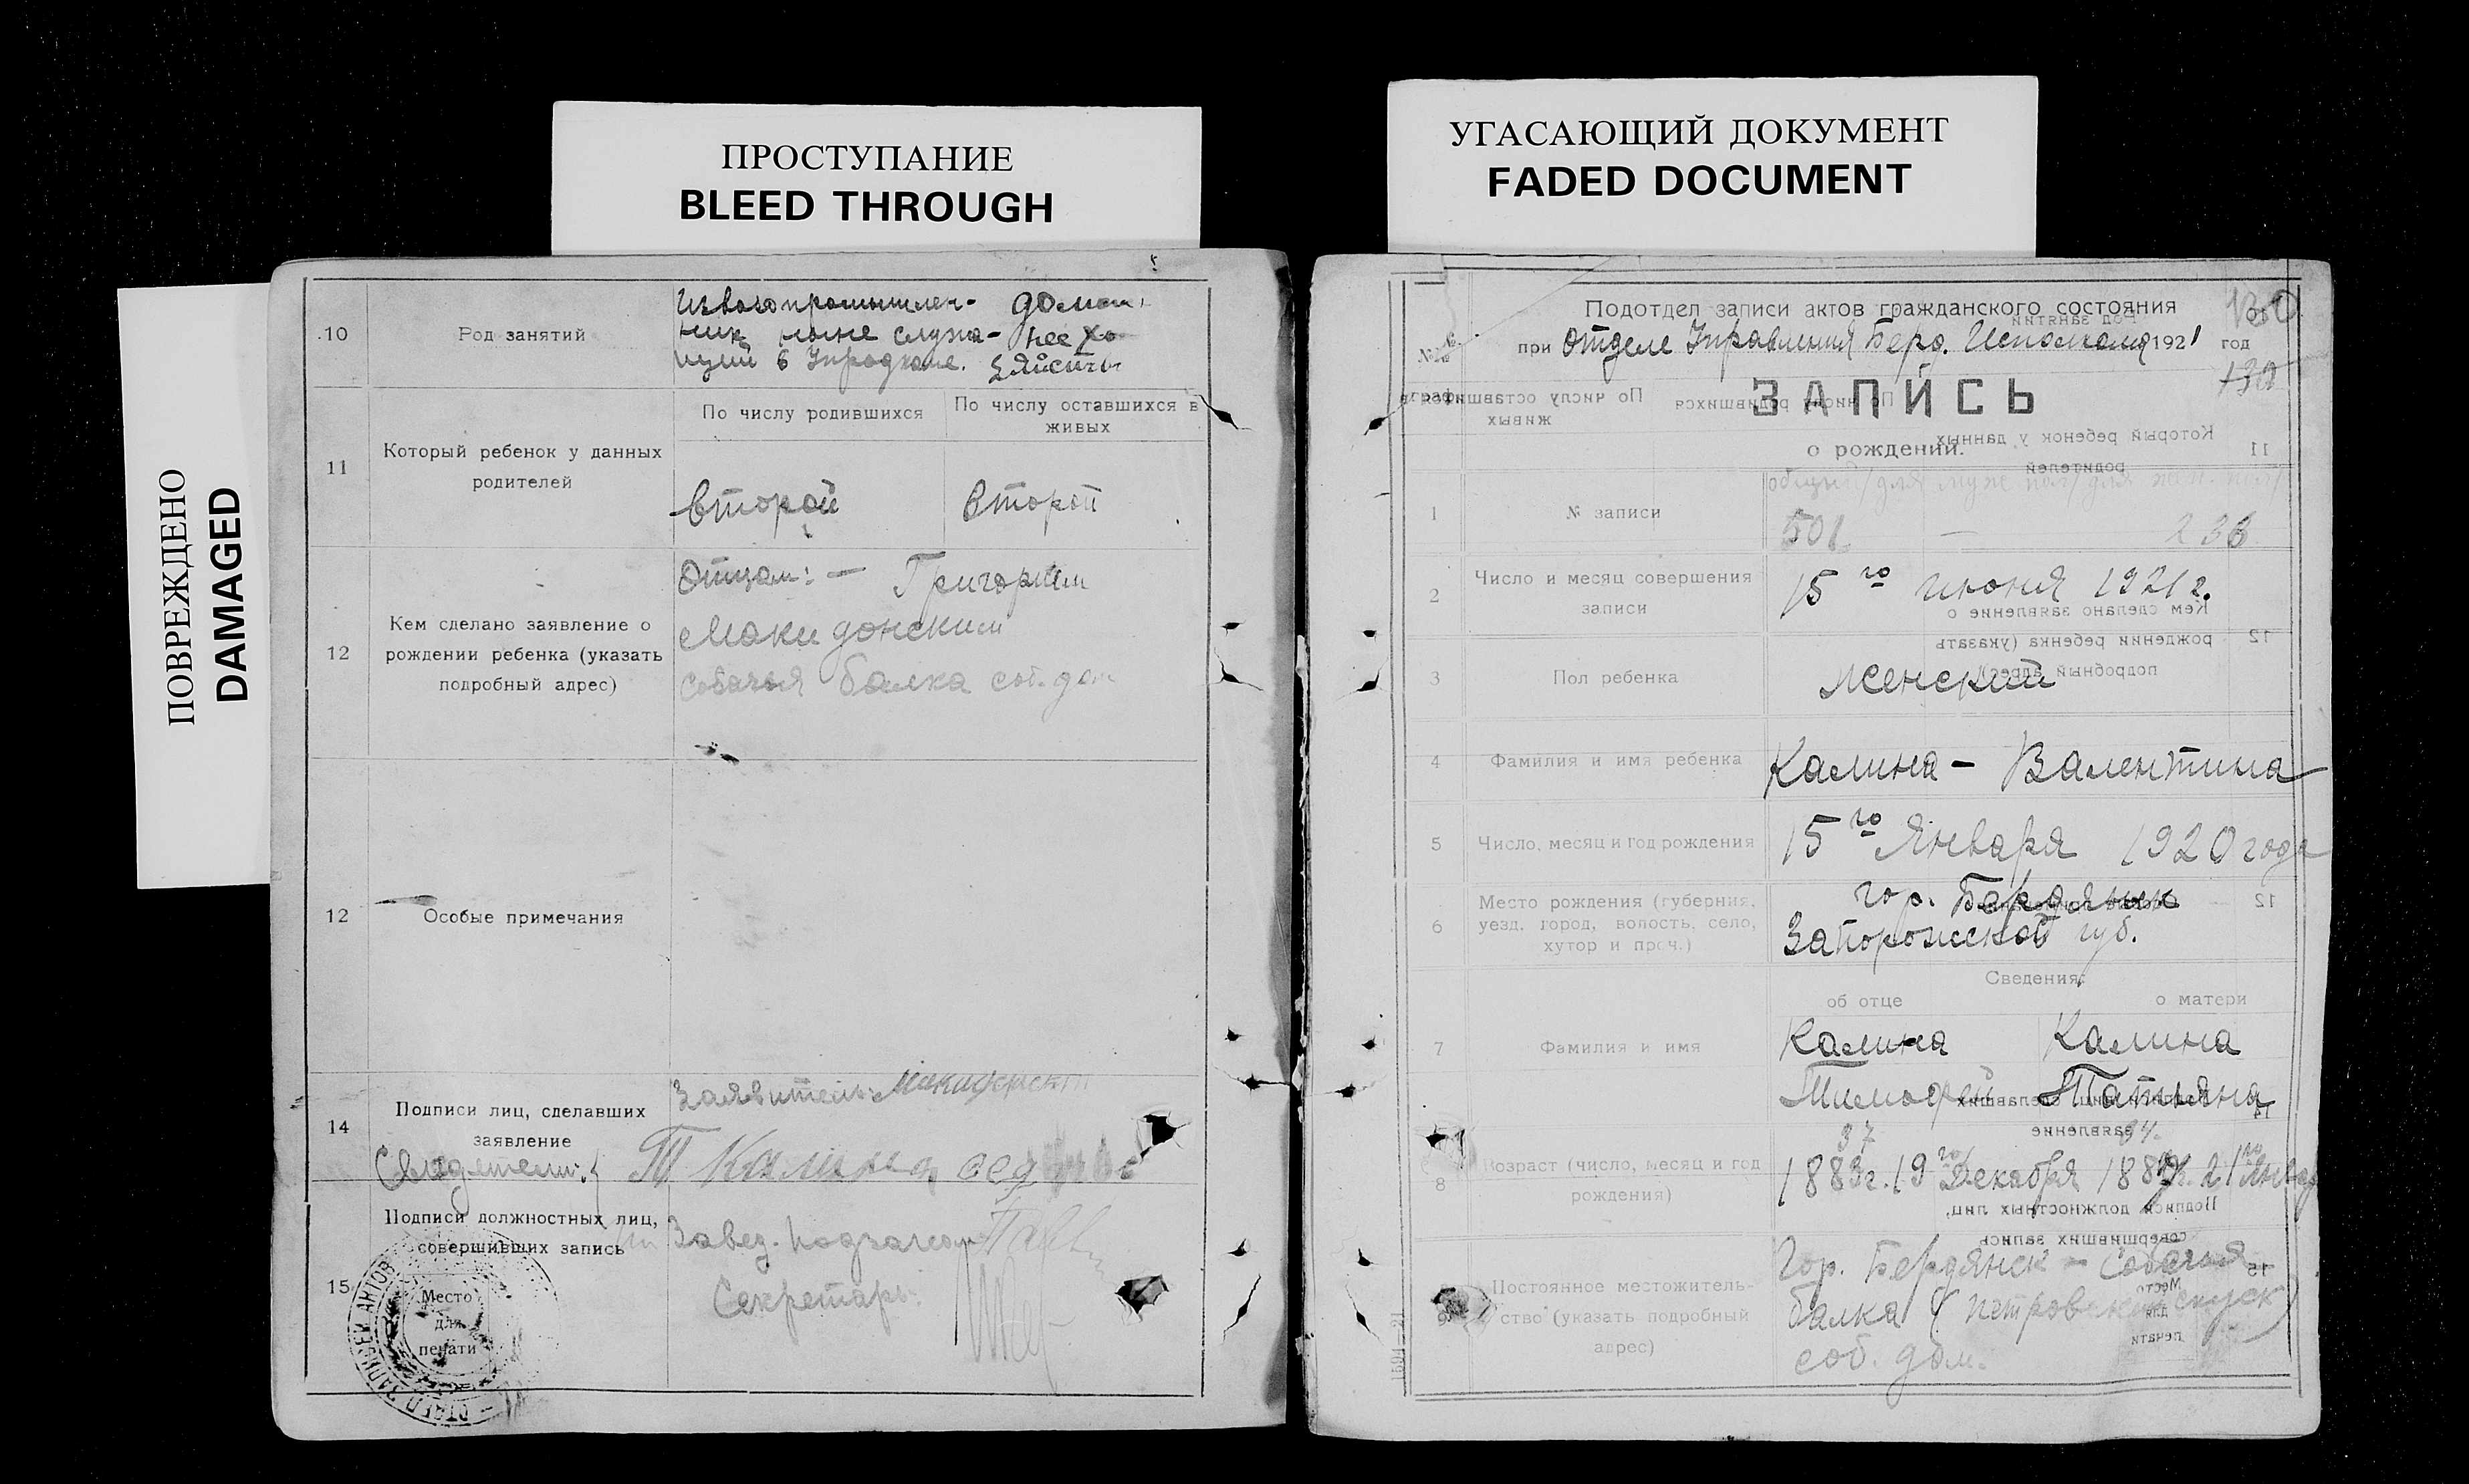 ПРОСТУПАНИЕ
BLEED THROUGH
УГАСАЮЩИЙ ДОКУМЕНТ
FADED DOCUMENT
ПОВРЕЖДЕНО
DAMAGED
10
Род занятий
Извозопромышлен-
ник ныне служа-
щий в Упродкоме.
домаш
нее хо
зяйство
11
Который ребенок у данных
родителей
По числу родившихся
По числу оставшихся в
живых
второй
второй
12
Кем сделано заявление о
рождении ребенка (указать
подробный адрес)
Отцом: — Григорием
Макидонским
Собачья балка соб. дом
12
Особые примечания
14
Подписи лиц, сделавших
заявление
Заявитель:
Свидетели:
Т Калина
15
Подписи должностных лиц,
совершивших запись
Завед. подзагсом
Секретарь
Место
для
печати
Подотдел записи актов гражданского состояния
при Отделе Управления Берд. Исполкома 1921 год
130
130
ЗАПИСЬ
о рождении.
1
№ записи
общий/для муж пол/для жен. пол/
501 — 236
2
Число и месяц совершения
записи
15го июня 1921 г.
3
Пол ребенка
Женский
4
Фамилия и имя ребенка
Калина - Валентина
5
Число, месяц и год рождения
15го Января 1920 года
6
Место рождения (губерния,
уезд, город, волость, село,
хутор и проч.)
гор. Бердянск
Запорожской губ.
Сведения:
об отце
о матери
7
Фамилия и имя
Калина
Тимофей
Калина
Татьяна
8
Возраст (число, месяц и год
рождения)
37
1883г. 19го Декабря
21го Январ
9
Постоянное местожитель-
ство (указать подробный
адрес)
Гор. Бердянск - Собачья
балка (Петровский спуск)
соб. дом.